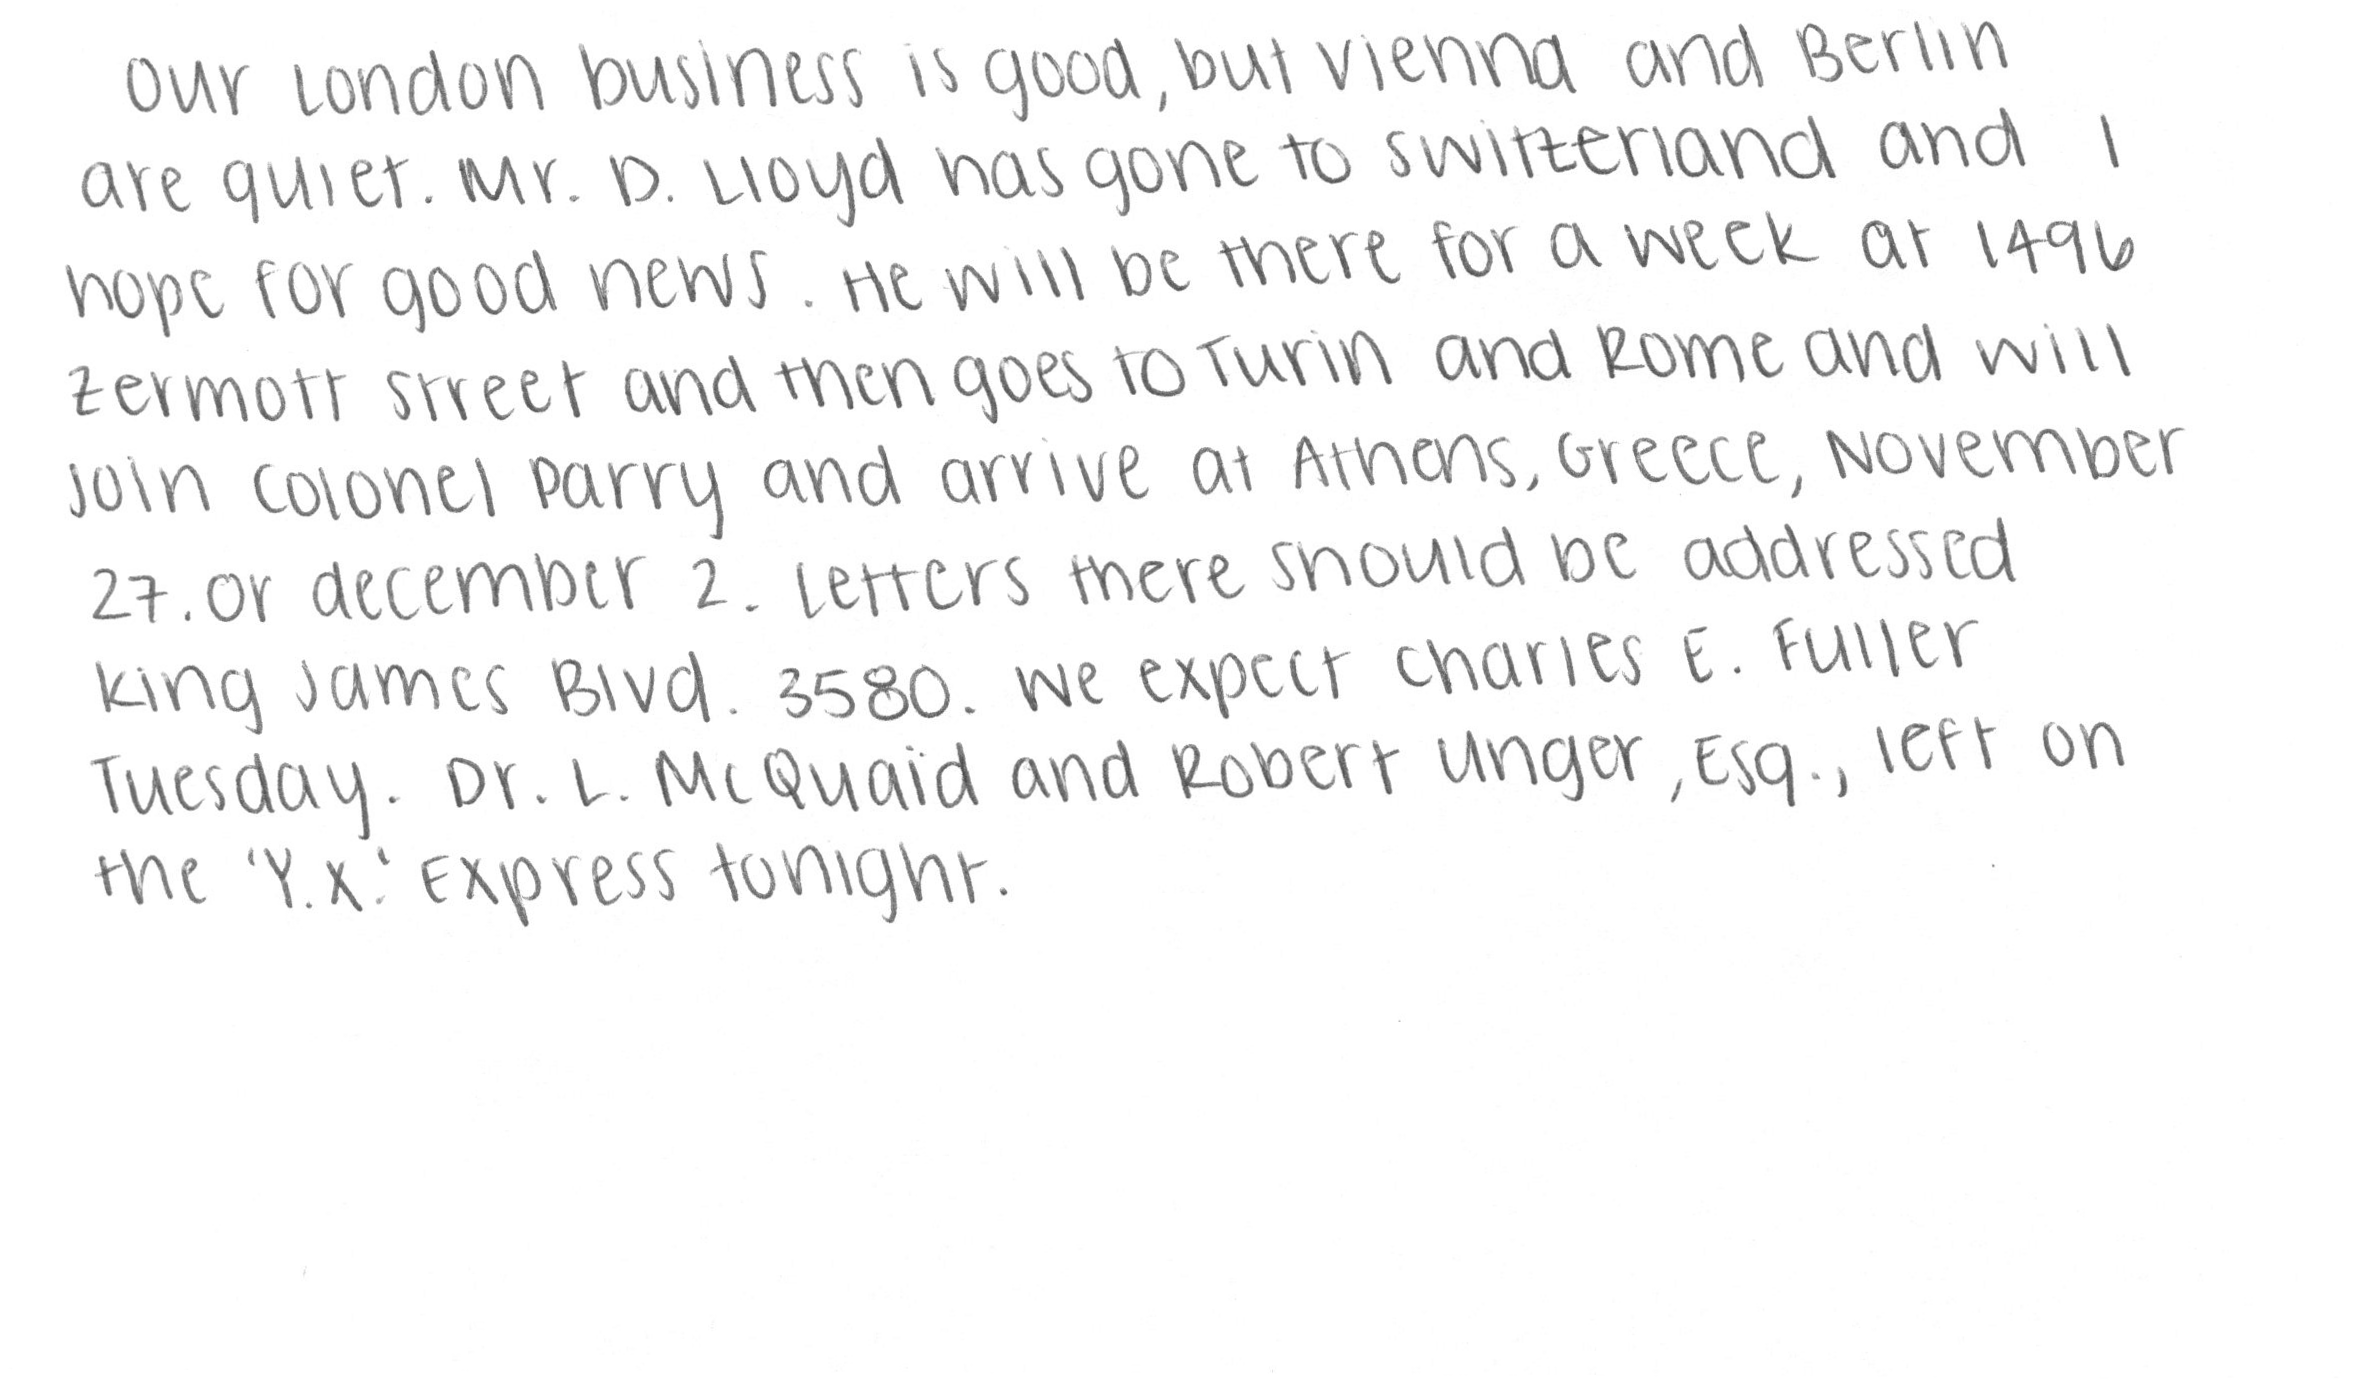 Our London business is good, but Vienna and Berlin
are quiet. Mr. D. Lloyd has gone to Switzerland and I
hope for good news. He will be there for a week at 1496
Zermott Street and then goes to Turin and Rome and will
join Colonel Parry and arrive at Athens, Greece, November
27. or december 2. Letters there should be addressed
King James Blvd. 3580. We expect Charles E. Fuller
Tuesday. Dr. L. McQuaid and Robert Unger, Esq., left on
the 'Y.X.' Express tonight.